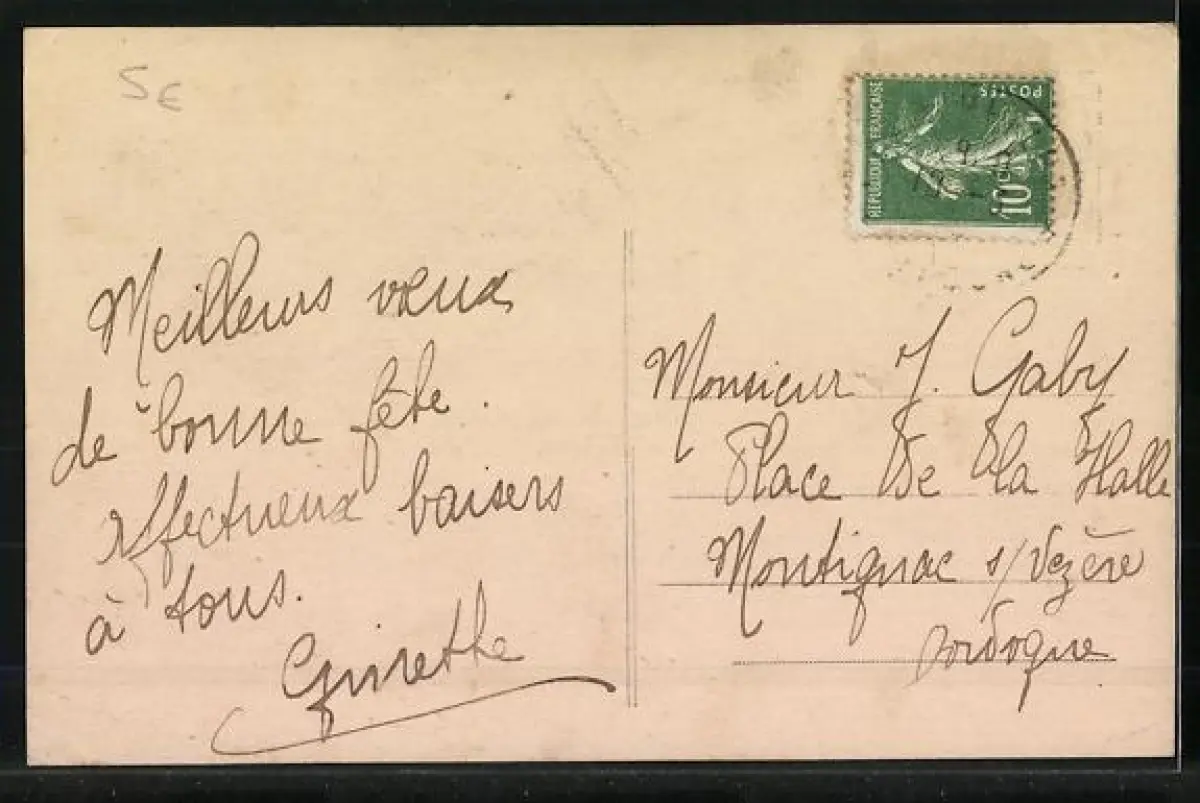 5€
Meilleurs vœux
de bonne fête.
Affectueux baisers
à tous.
RÉPUBLIQUE FRANÇAISE
POSTES
10c
Monsieur J. Gaby
Place De la Halle
Montignac s/Vezère
Dordogne